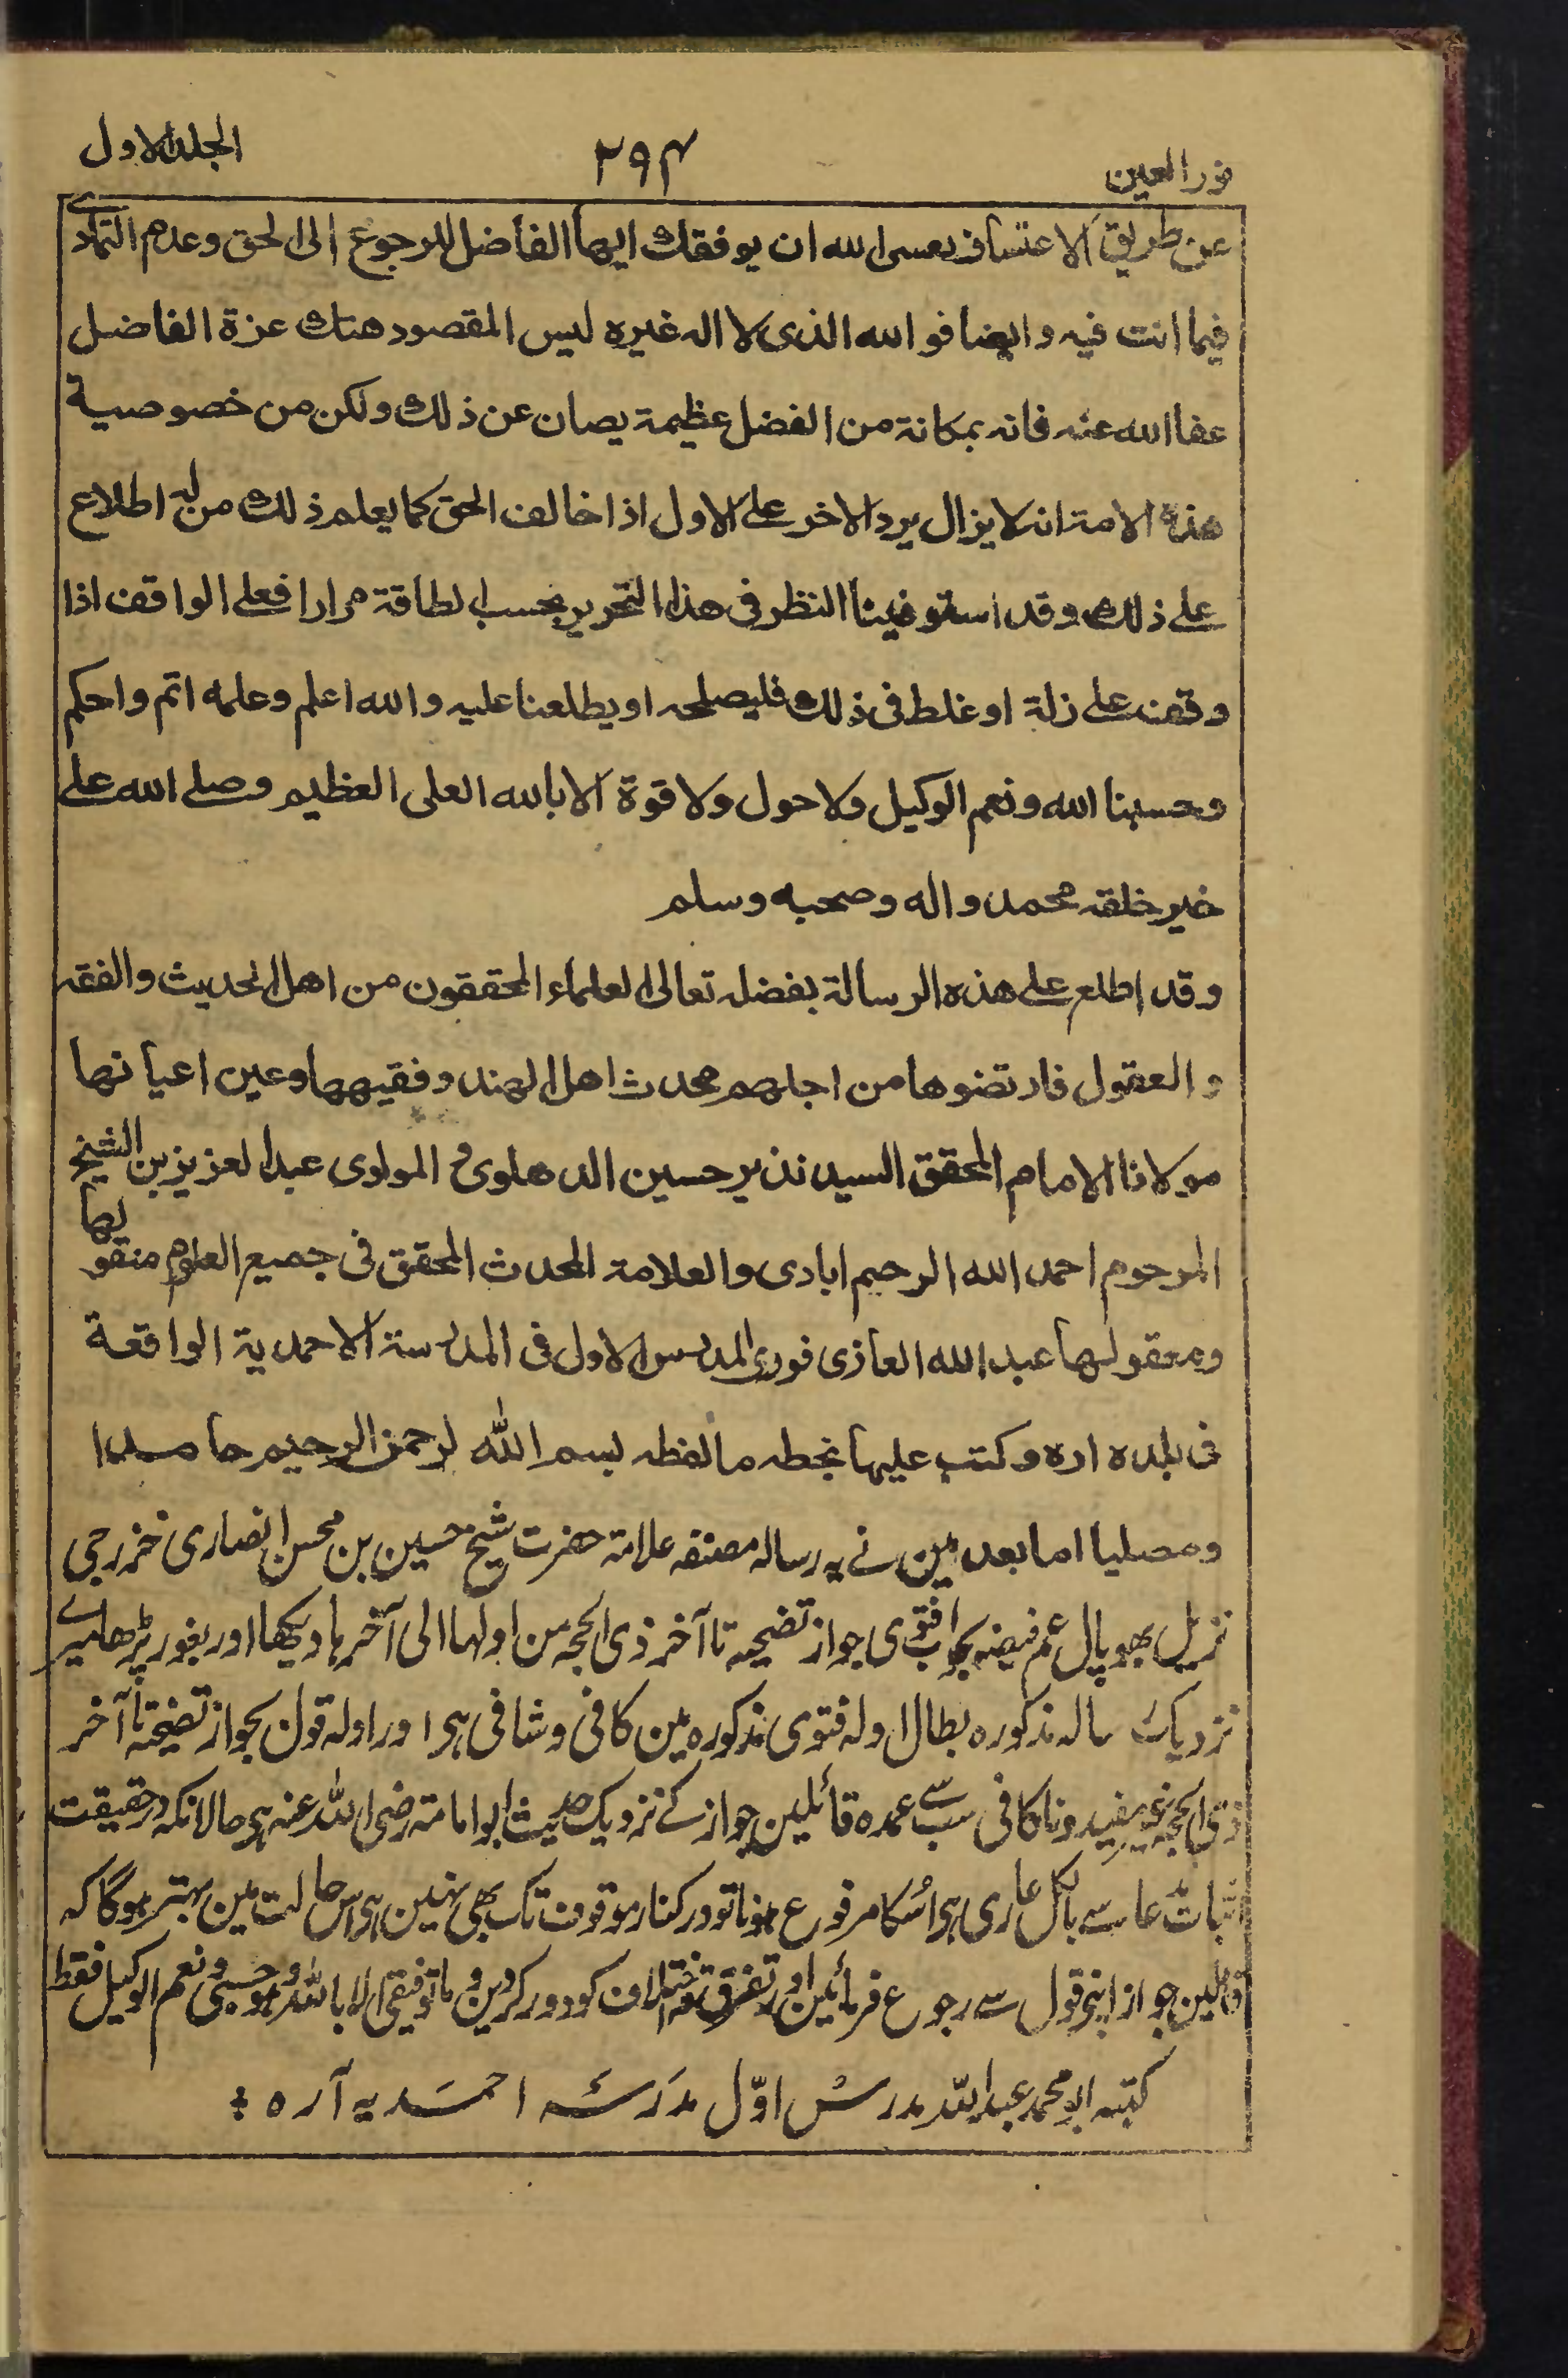 نور العين ٢٩٤ الجلد الاول
عن طريق الاعتساف بعسى الله ان يوفقك ايها الفاضل للرجوع الى الحق وعدم التمادي
فيما انت فيه وايضا فوالله الذى لا اله غيره ليس المقصود هتك عزة الفاضل
عفا الله عنه فانه بمكانة من الفضل عظيمة يصان عن ذلك ولكن من خصوصية
هذه الامة انه لا يزال يرد الاخر على الاول اذا خالف الحق كما يعلم ذلك من له اطلاع
على ذلك وقد استوفينا النظر فى هذا التحرير بحسب الطاقة مرارا فعلى الواقف اذا
وقف على زلة او غلط فى ذلك فليصلحه او يطلعنا عليه والله اعلم وعلمه اتم واحكم
وحسبنا الله ونعم الوكيل ولا حول ولا قوة الا بالله العلى العظيم وصلى الله على
خير خلقه محمد واله وصحبه وسلم
وقد اطلع على هذه الرسالة بفضله تعالى العلماء المحققون من اهل الحديث والفقه
والعقول فارتضوها من اجلهم محدث اهل الهند وفقيهها وعين اعيانها
مولانا الامام المحقق السيد نذير حسين الدهلوى و المولوى عبد العزيز بن الشيخ
المرحوم احمد الله الرحيم ابادى والعلامة المحدث المحقق فى جميع العلوم منقولها
ومعقولها عبد الله الغازى فورى المدرس الاول فى المدرسة الاحمدية الواقعة
فى بلده اره وكتب عليها بخطه ما لفظه بسم الله الرحمن الرحيم حامدا
ومصليا اما بعد مین نے یہ رسالہ مصنفہ علامۃ حضرت شیخ حسین بن محسن انصاری خزرجی
نزیل بھوپال عم فیضہ بجواب فتوی جواز تضحیہ تا آخر ذی الحجہ من اولہا الی آخرہا دیکھا اور بغور پڑھا میرے
نزدیک رسالہ مذکورہ بطال ادلہ فتوی مذکورہ مین کافی وشافی ہی اور ادلہ قول بجواز تضحیۃ تا آخر
ذی الحجہ غیر مفید وناکافی سب سے عمدہ قائلین جواز کے نزدیک حدیث ابو امامۃ رضی اللہ عنہ ہی حالانکہ درحقیقت
اثبات مدعا سے بالکل عاری ہی اسکا مرفوع ہونا تو درکنار موقوف تک بھی نہین ہی اس حالت مین بہتر ہوگا کہ
قائلین جواز اپنی قول سے رجوع فرمائین اور تفرق واختلاف کو دور کردین وما توفیقی الا باللہ وہو حسبی ونعم الوکیل فقط
کتبہ ابو محمد عبد اللہ مدرس اوّل مدرسہ احمدیہ آرہ